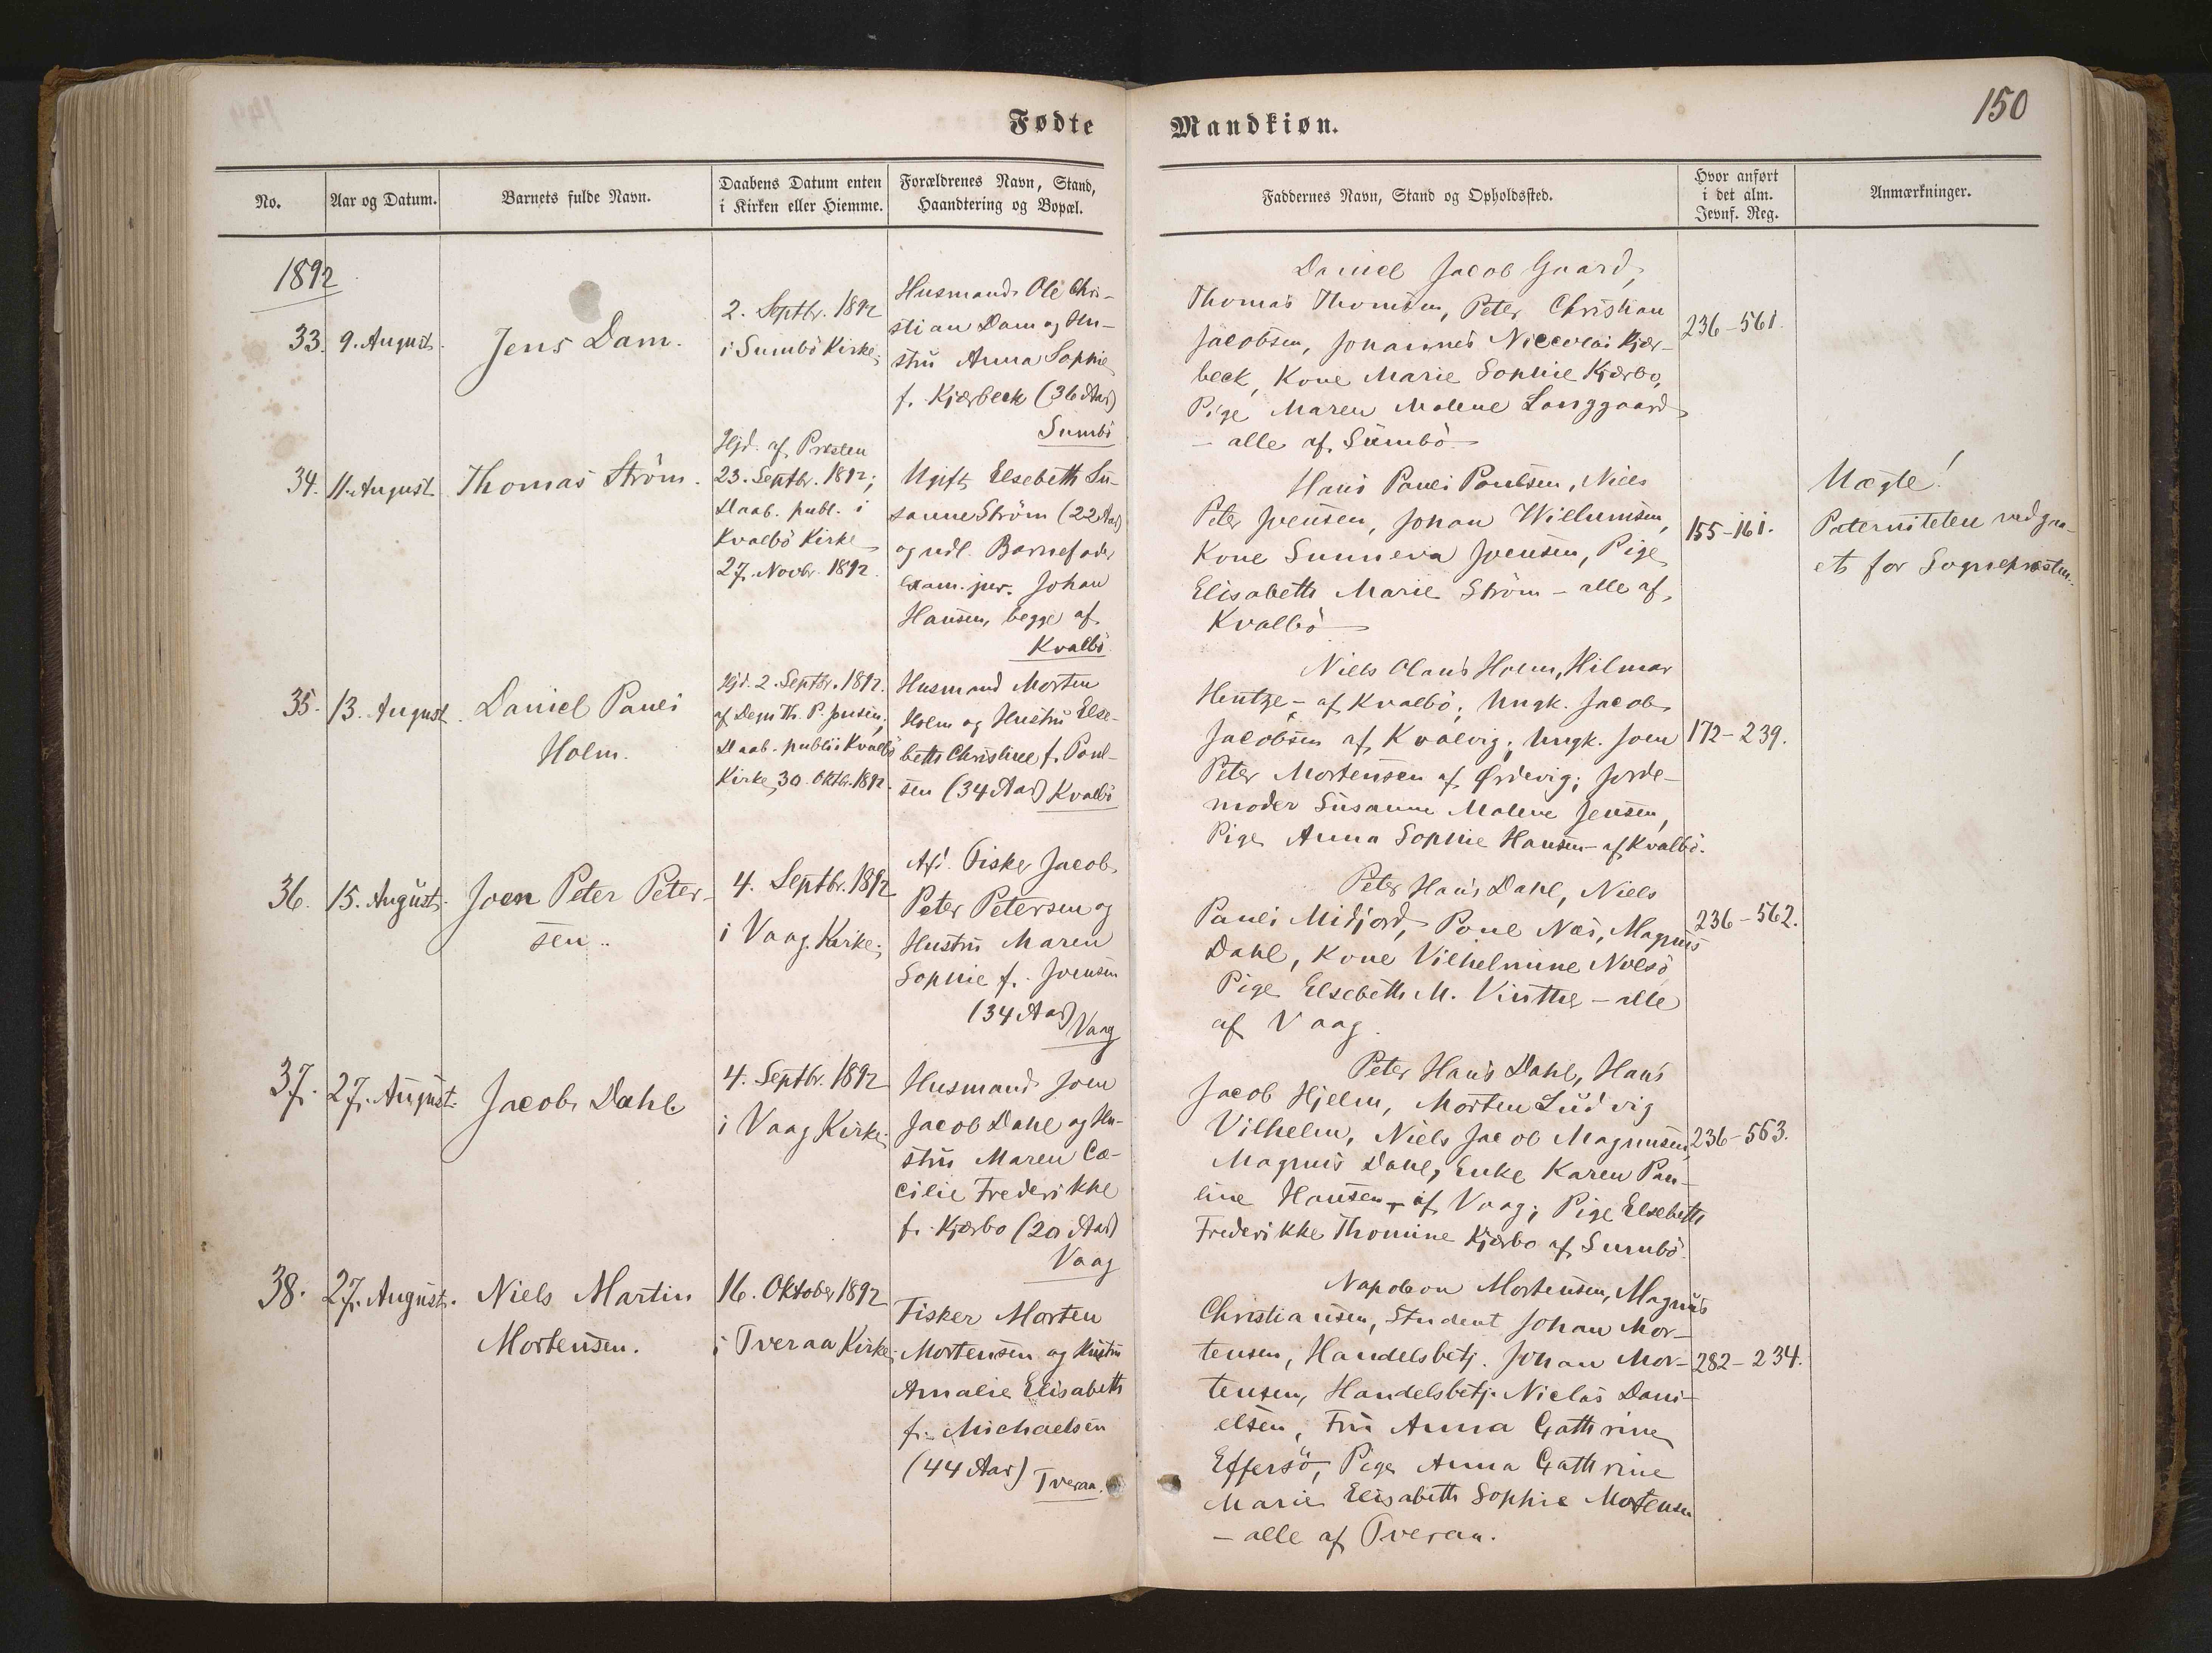 150
Fødte
Mandkiøn.
No.
Aar og Datum.
Barnets fulde Navn.
Daabens Datum enten
i Kirken eller Hiemme.
Forældrenes Navn, Stand,
Haandtering og Bopæl.
Faddernes Navn, Stand og Opholdssted.
Hvor anført
i det alm.
Jevnf. Reg.
Anmærkninger.
1892
33.
9. August.
Jens Dam.
2. Septbr. 1892
i Sumbö Kirke;
Husmand Ole Chri-
stian Dam og Hu-
stru Anna Sophie
f. Kjærbeck (36 Aar)
Sumbö
Daniel Jacob Gaard,
Thomas Thomsen, Peter Christian
Jacobsen, Johannes Niccolai Kjær-
beck, Kone Marie Sophie Kjærbo,
Pige Maren Malene Langgaard
– alle af Sumbö
236–561.
34.
11. August
Thomas Ström.
Hjd. af Præsten
23. Septbr. 1892;
Daab. publ. i
Kvalbö Kirke
27. Novbr. 1892.
Ugift Elsebeth Su-
sanne Ström (22 Aar)
og udl. Barnefader
exam. jur. Johan
Hansen, begge af
Kvalbö.
Hans Pauli Poulsen, Niels
Peter Joensen, Johan Willumsen,
Kone Sunneva Joensen, Pige
Elisabeth Marie Ström – alle af
Kvalbö
155–161.
Uægte!
Paterniteten vedgaa-
et for Sognepræsten.
35.
13. August.
Daniel Pauli
Holm.
Hjd. 2. Septbr. 1892.
af Degn Th. P. Jensen;
Daab. publ. i Kvalbö
Kirke 30. Oktbr. 1892.
Husmand Morten
Holm og Hustru Else-
beth Christine f. Poul-
sen (34 Aar) Kvalbö
Niels Olaus Holm, Hilmar
Hentze – af Kvalbö; Ungk. Jacob
Jacobsen af Kvalvig; Ungk. Joen
Peter Mortensen af Ørdevig; Jorde-
moder Susanne Malene Jensen,
Pige Anna Sophie Hansen – af Kvalbö.
172–239.
36.
15. August.
Joen Peter Peter-
sen.
4. Septbr. 1892
i Vaag Kirke;
Afd. Fisker Jacob
Peter Petersen og
Hustru Maren
Sophie f. Joensen
(34 Aar)
Vaag
Peter Hans Dahl, Niels
Pauli Midjord, Poul Næs, Magnus
Dahl, Kone Vilhelmine Nolsö
Pige Elsebeth M. Vinther – alle
af Vaag.
236–562.
37.
27. August.
Jacob Dahl
4. Septbr. 1892
i Vaag Kirke;
Husmand Joen
Jacob Dahl og Hu-
stru Maren Cæ-
cilie Frederikke
f. Kjærbo (20 Aar)
Vaag
Peter Hans Dahl, Hans
Jacob Hjelm, Morten Ludvig
Vilhelm, Niels Jacob Magnusen,
Magnus Dahl, Enke Karen Pau-
line Hansen – af Vaag; Pige Elsebeth
Frederikke Thomine Kjærbo af Sumbö.
236–563.
38.
27. August.
Niels Martin
Mortensen.
16. Oktober 1892
i Tveraa Kirke;
Fisker Morten
Mortensen og Hustru
Amalie Elisabeth
f. Michaelsen
(44 Aar) Tveraa.
Napoleon Mortensen, Magnus
Christiansen, Student Johan Mor-
tensen, Handelsbetj. Johan Mor-
tensen, Handelsbetj. Niclas Dani-
elsen, Fru Anna Cathrine
Effersö, Pige Anna Cathrine
Marie Elisabeth Sophie Mortensen
– alle af Tveraa.
282–234.